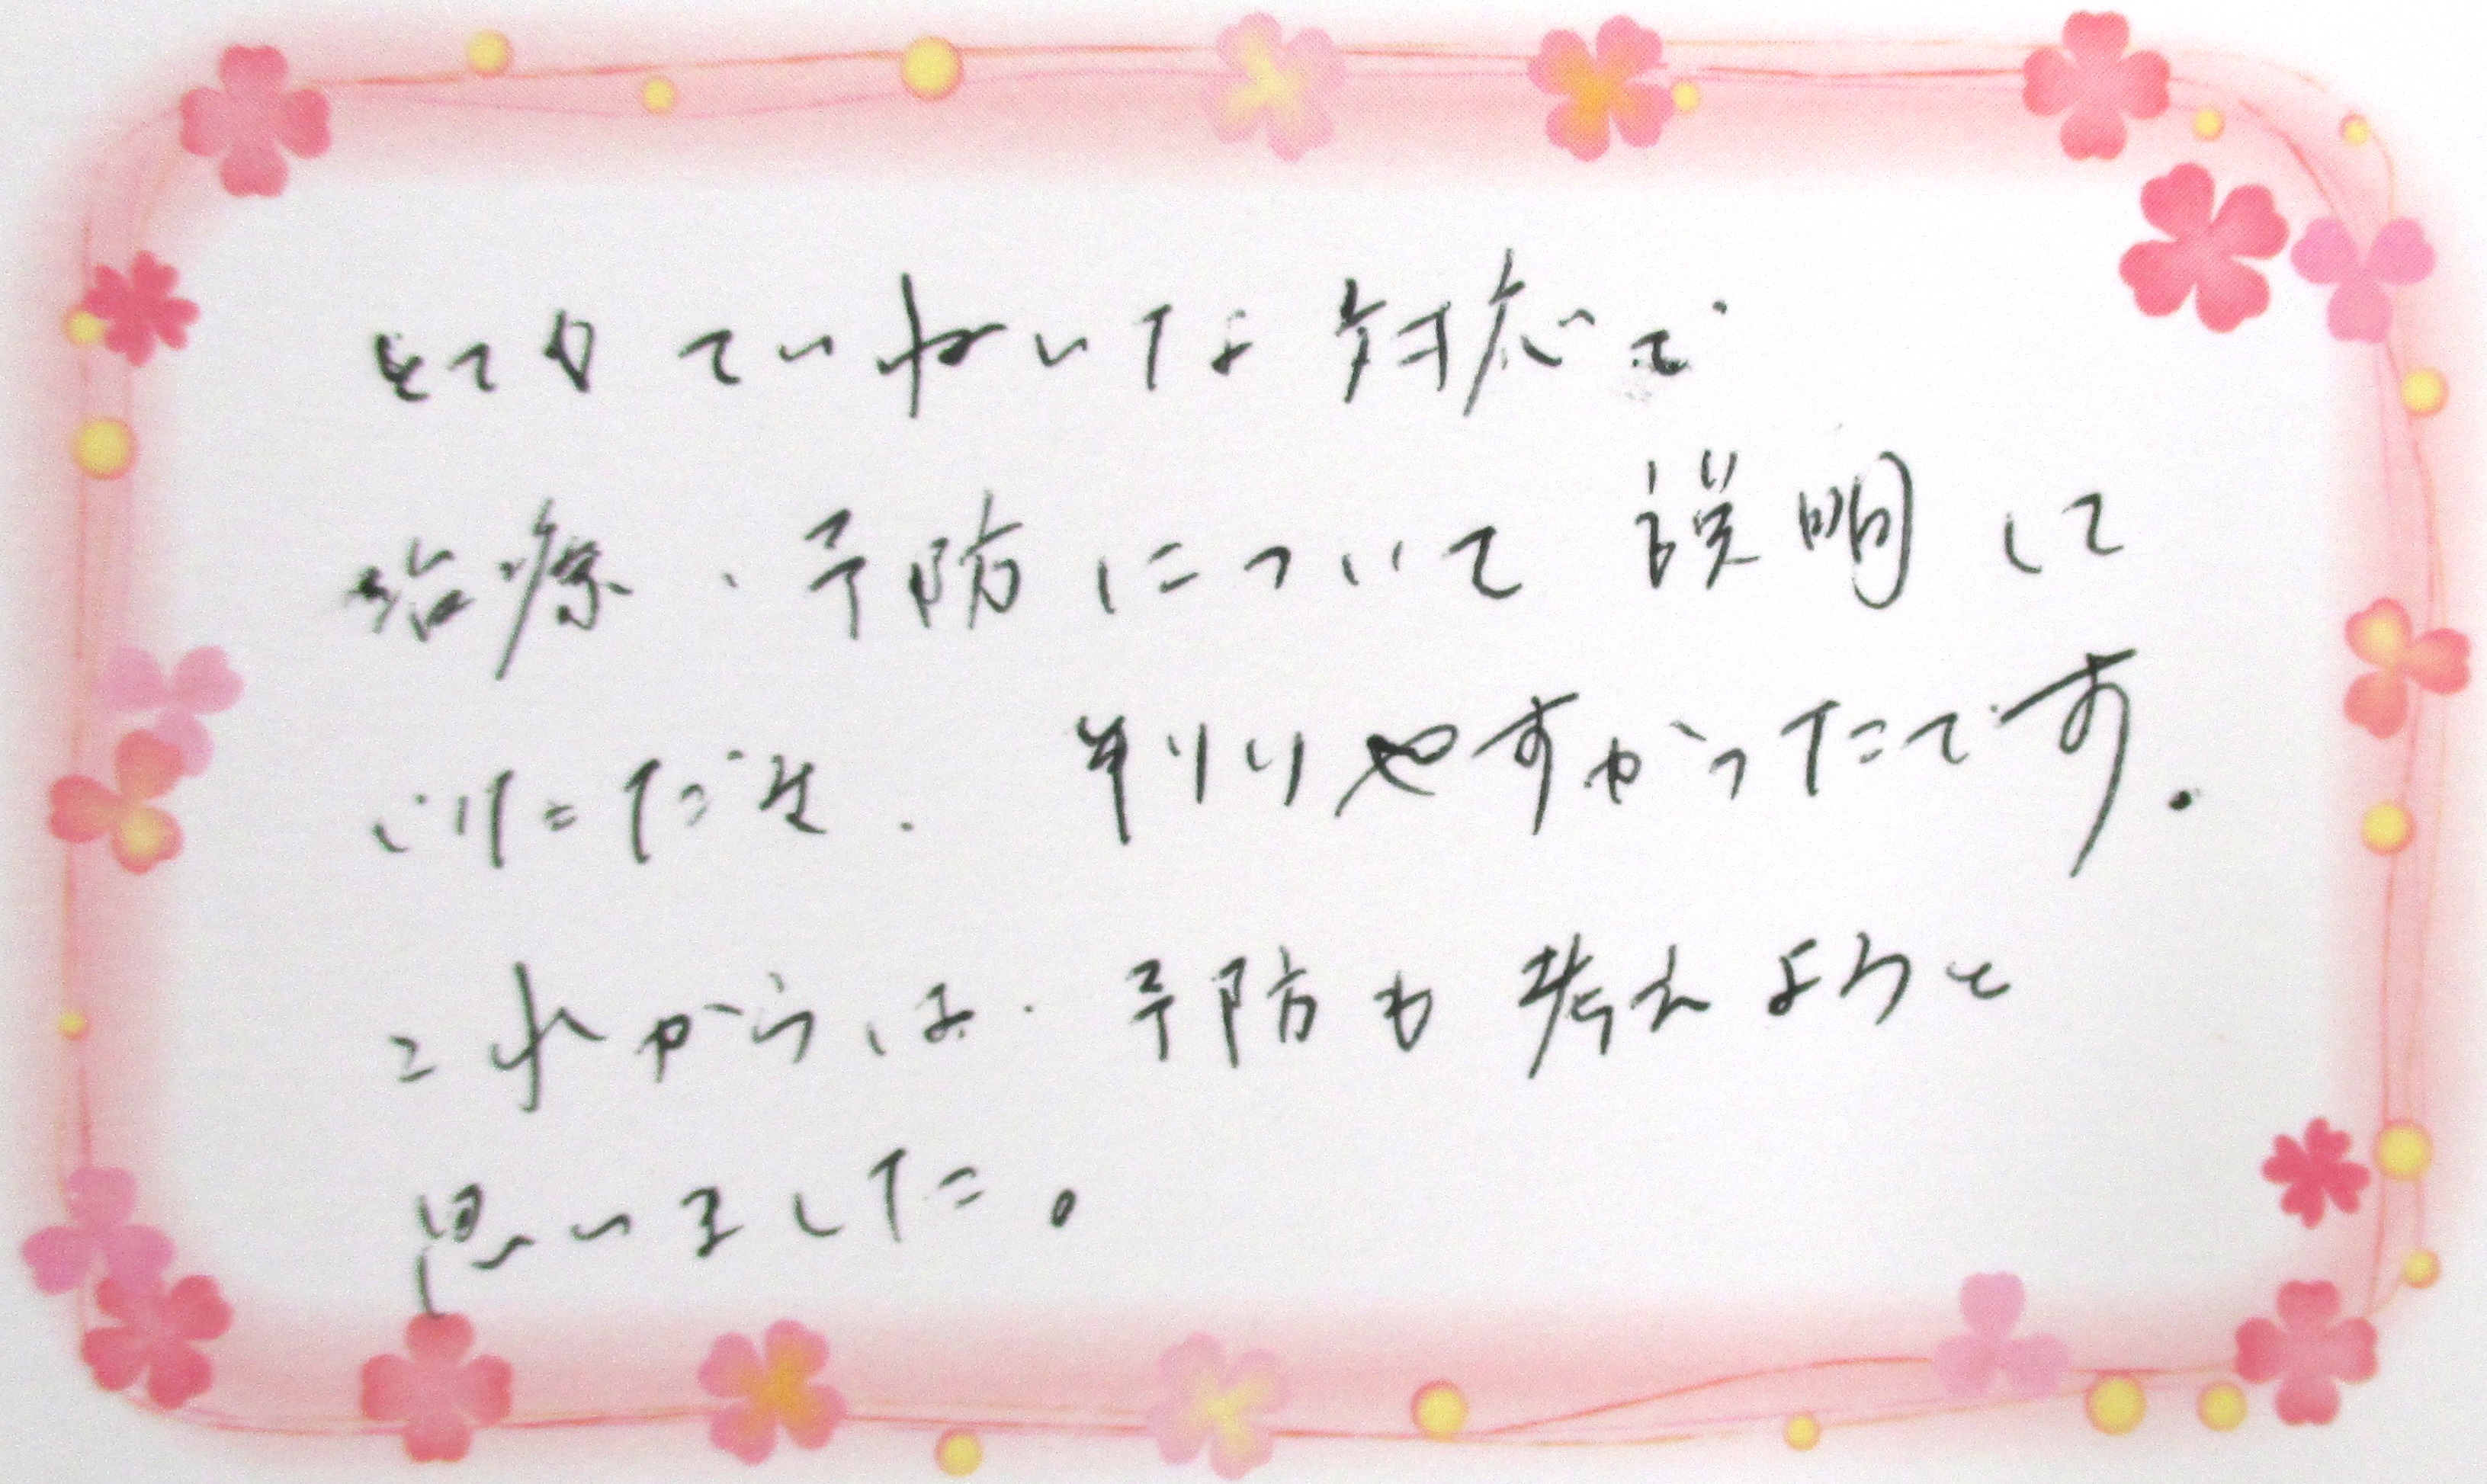 とてもていねいな対応で
治療、予防について説明して
いただき、判りやすかったです。
これからは、予防も考えようと
思いました。